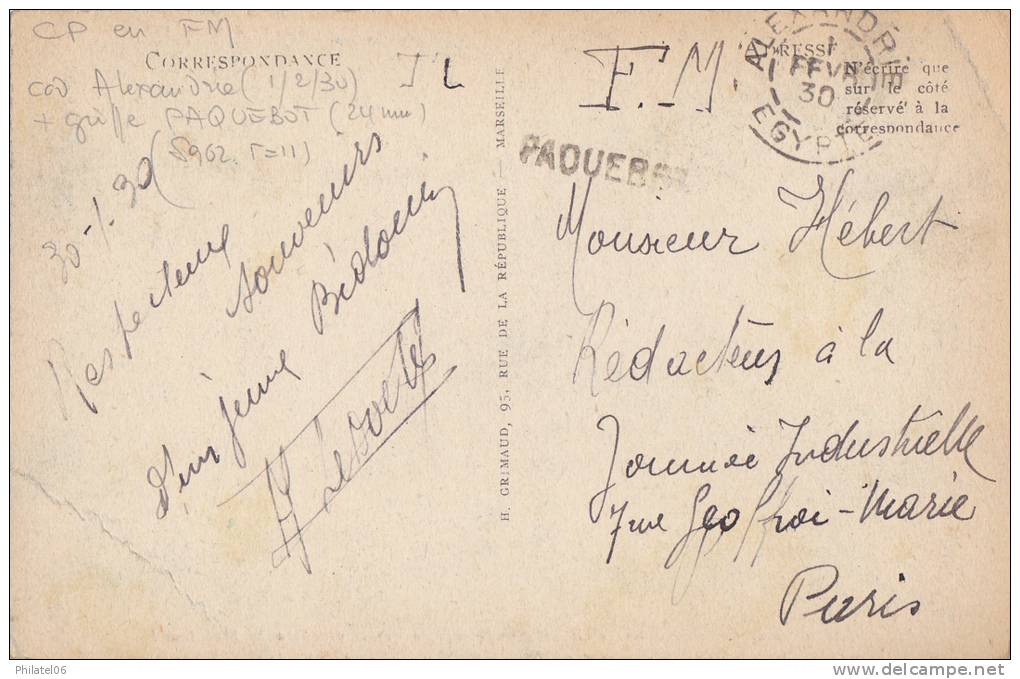 CP en FM
CORRESPONDANCE
cad Alexandrie (1/2/30)
+ griffe PAQUEBOT (24 mm)
(S962. T=11)
30-1-30
Respectueux
souvenirs
d'un jeune
H. GRIMAUD, 95, RUE DE LA RÉPUBLIQUE — MARSEILLE
F.M.
ADRESSE
N'écrire que
sur le côté
réservé à la
correspondance
ALEXANDRIE
1
FEVR
30
EGYPTE
PAQUEBOT
Monsieur Hébert
Rédacteur à la
Journée Industrielle
rue Geoffroi-Marie
Paris
Philatel06
www.delcampe.net